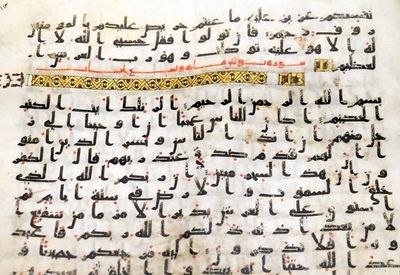 نفسكم عزيز عليه ما عنتم حريص عليكم بالمومنين
روف رحيم فان تولوا فقل حسبي الله لا
اله الا هو عليه توكلت وهو رب العرش ا
لعظيم
بسم الله الرحمن الرحيم الر تلك ايت الكتب
الحكيم اكان للناس عجبا ان اوحينا الى ر
جل منهم ان انذر الناس وبشر الذين امنو
ا ان لهم قدم صدق عند ربهم قال الكفر
ون ان هذا لسحر مبين ان ربكم الله الذي
خلق السموت والارض في ستة ايام ثم
استوى على العرش يدبر الامر ما من شفيع ا
لا من بعد اذنه ذلكم الله ربكم فاعبد
وه افلا تذكرون اليه مرجعكم جميعا و
عد الله حقا انه